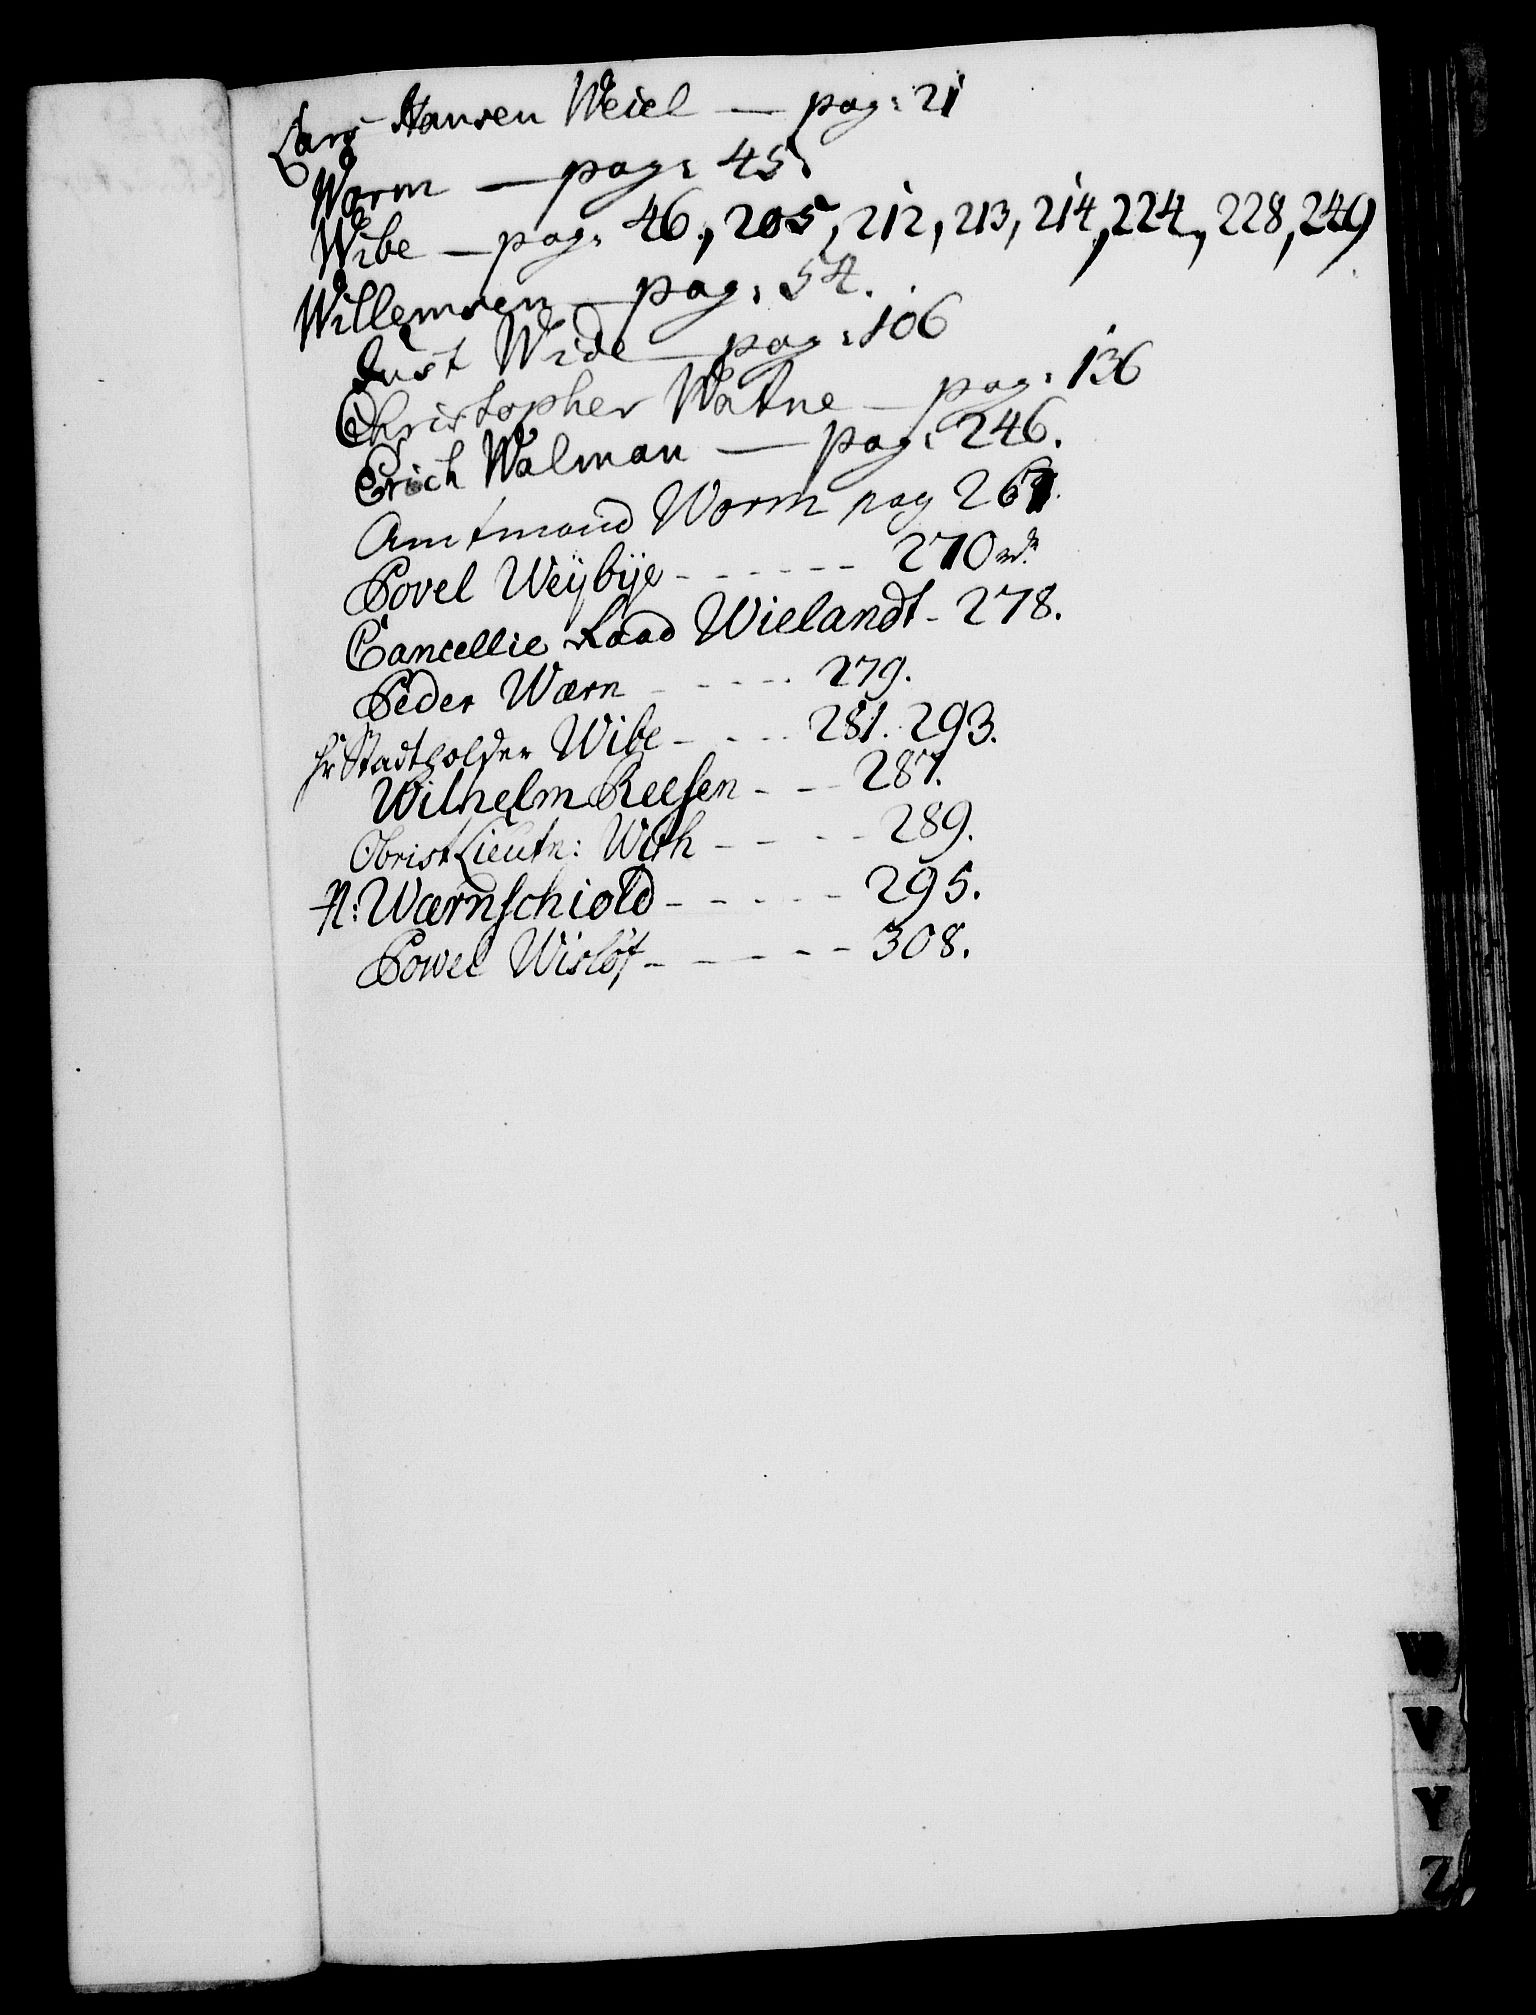 Lars Hansen Weiel — pag: 21
Worm — pag: 45.
Wibe — pag: 46., 205, 212, 213, 214, 224, 228, 249
Willemsen — pag: 54.
Just Wide — pag: 106
Christopher Watne — pag: 136
Erich Walman — pag: 246.
Amtmand Worm pag 267.
Povel Weÿbÿe - - - - - - 270
Cancellie Raad Wielandt - 278.
Peder Wærn - - - - - 279.
Hr Stadtholder Wibe - - - - 281. 293.
Wilhelm Reesen - - - 287.
Obrist Lieutn: With - - - - - 289.
N: Wærnschiold - - - - - 295.
Powel Wisløf - - - - - 308.
W
V
Y
Z